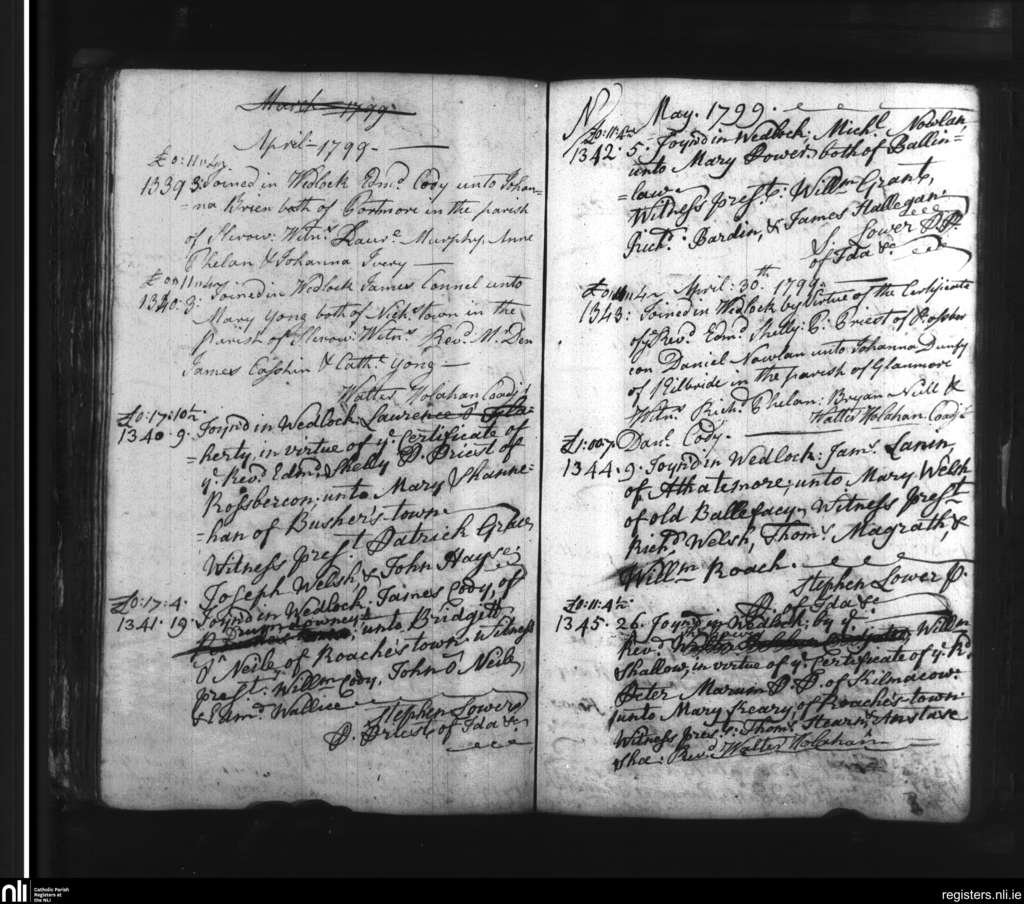 March 1799
April - 1799 -
£0:11:4½
1339 3: Joined in Wedlock Edmd. Cody unto Johan-
=na Brien both of Portmore in the parish
of Slirow: Witns. Laurce. Murphy, Anne
Phelan & Johanna Ivery
£0:11:4½
1340: 3: Joined in Wedlock James Connel unto
Mary Yong both of Nichs. town in the
Parish of Slirow: Witns. Revd. M. Den
James Cashin & Cathe. Yong
Walter Holahan Coadjr.
£0:17:10½
1340 9. Joyn'd in Wedlock, Lawrence
=herty, in virtue of ye. Certificate of
ye. Revd. Edmd. Shelly P. Priest of
Rossbercon; unto Mary Shanne=
=han of Busher's town
Witness prest. Patrick Grace
Joseph Welsh & John Hayse
£0:17:4.
1341. 19. Joynd in Wedlock, James Cody, of
unto Bridgett
O'Neile of Roache's town: Witness
prest. Willm. Cody, John O'Neile
& Edmd. Wallice
Stephen Lower
P. Priest of Ida &c
N May. 1799.
£0:11:4½
1342: 5: Joyn'd in Wedlock: Michl. Nowlan
unto Mary Power, both of Ballin=
=law
Witness prest: Willm. Grant,
Richd. Bardin, & James Hallegan
S. Lower P.P.
of Ida &c
£0:11:4½ April: 30.th 1799
1343: Joined in Wedlock by virtue of the Certificate
of ye Revd. Edmd. Shelly: P: Priest of Rosber
con Daniel Nowlan unto Johanna Dunfy
of Kilbride in the parish of Glanmore
Witns. Richd. Phelan: Bryan Neill &
Walter Holahan Coadjr.
Danl. Cody.
£1:00:7½
1344. 9. Joyn'd in Wedlock: Jams. Lanin
of Athatesmore; unto Mary Welsh
of old Ballefacy, Witness prest.
Richd. Welsh, Thoms. Magrath, &
Willm. Roach.
Stephen Lower P.
P. of Ida &c
£0:11:4½
1345. 26. Joynd in Wedlock; by ye.
Revd. Willm
Shallow; in virtue of ye. Certificate of ye. Rd.
Peter Marum P. P. of Kilmacow:
unto Mary Freary of Roache's town
Witness prest: Thoms. Hearn: Anstase
Shea: Revd. Walter Holahan
nli
Catholic Parish
Registers at
the NLI
registers.nli.ie